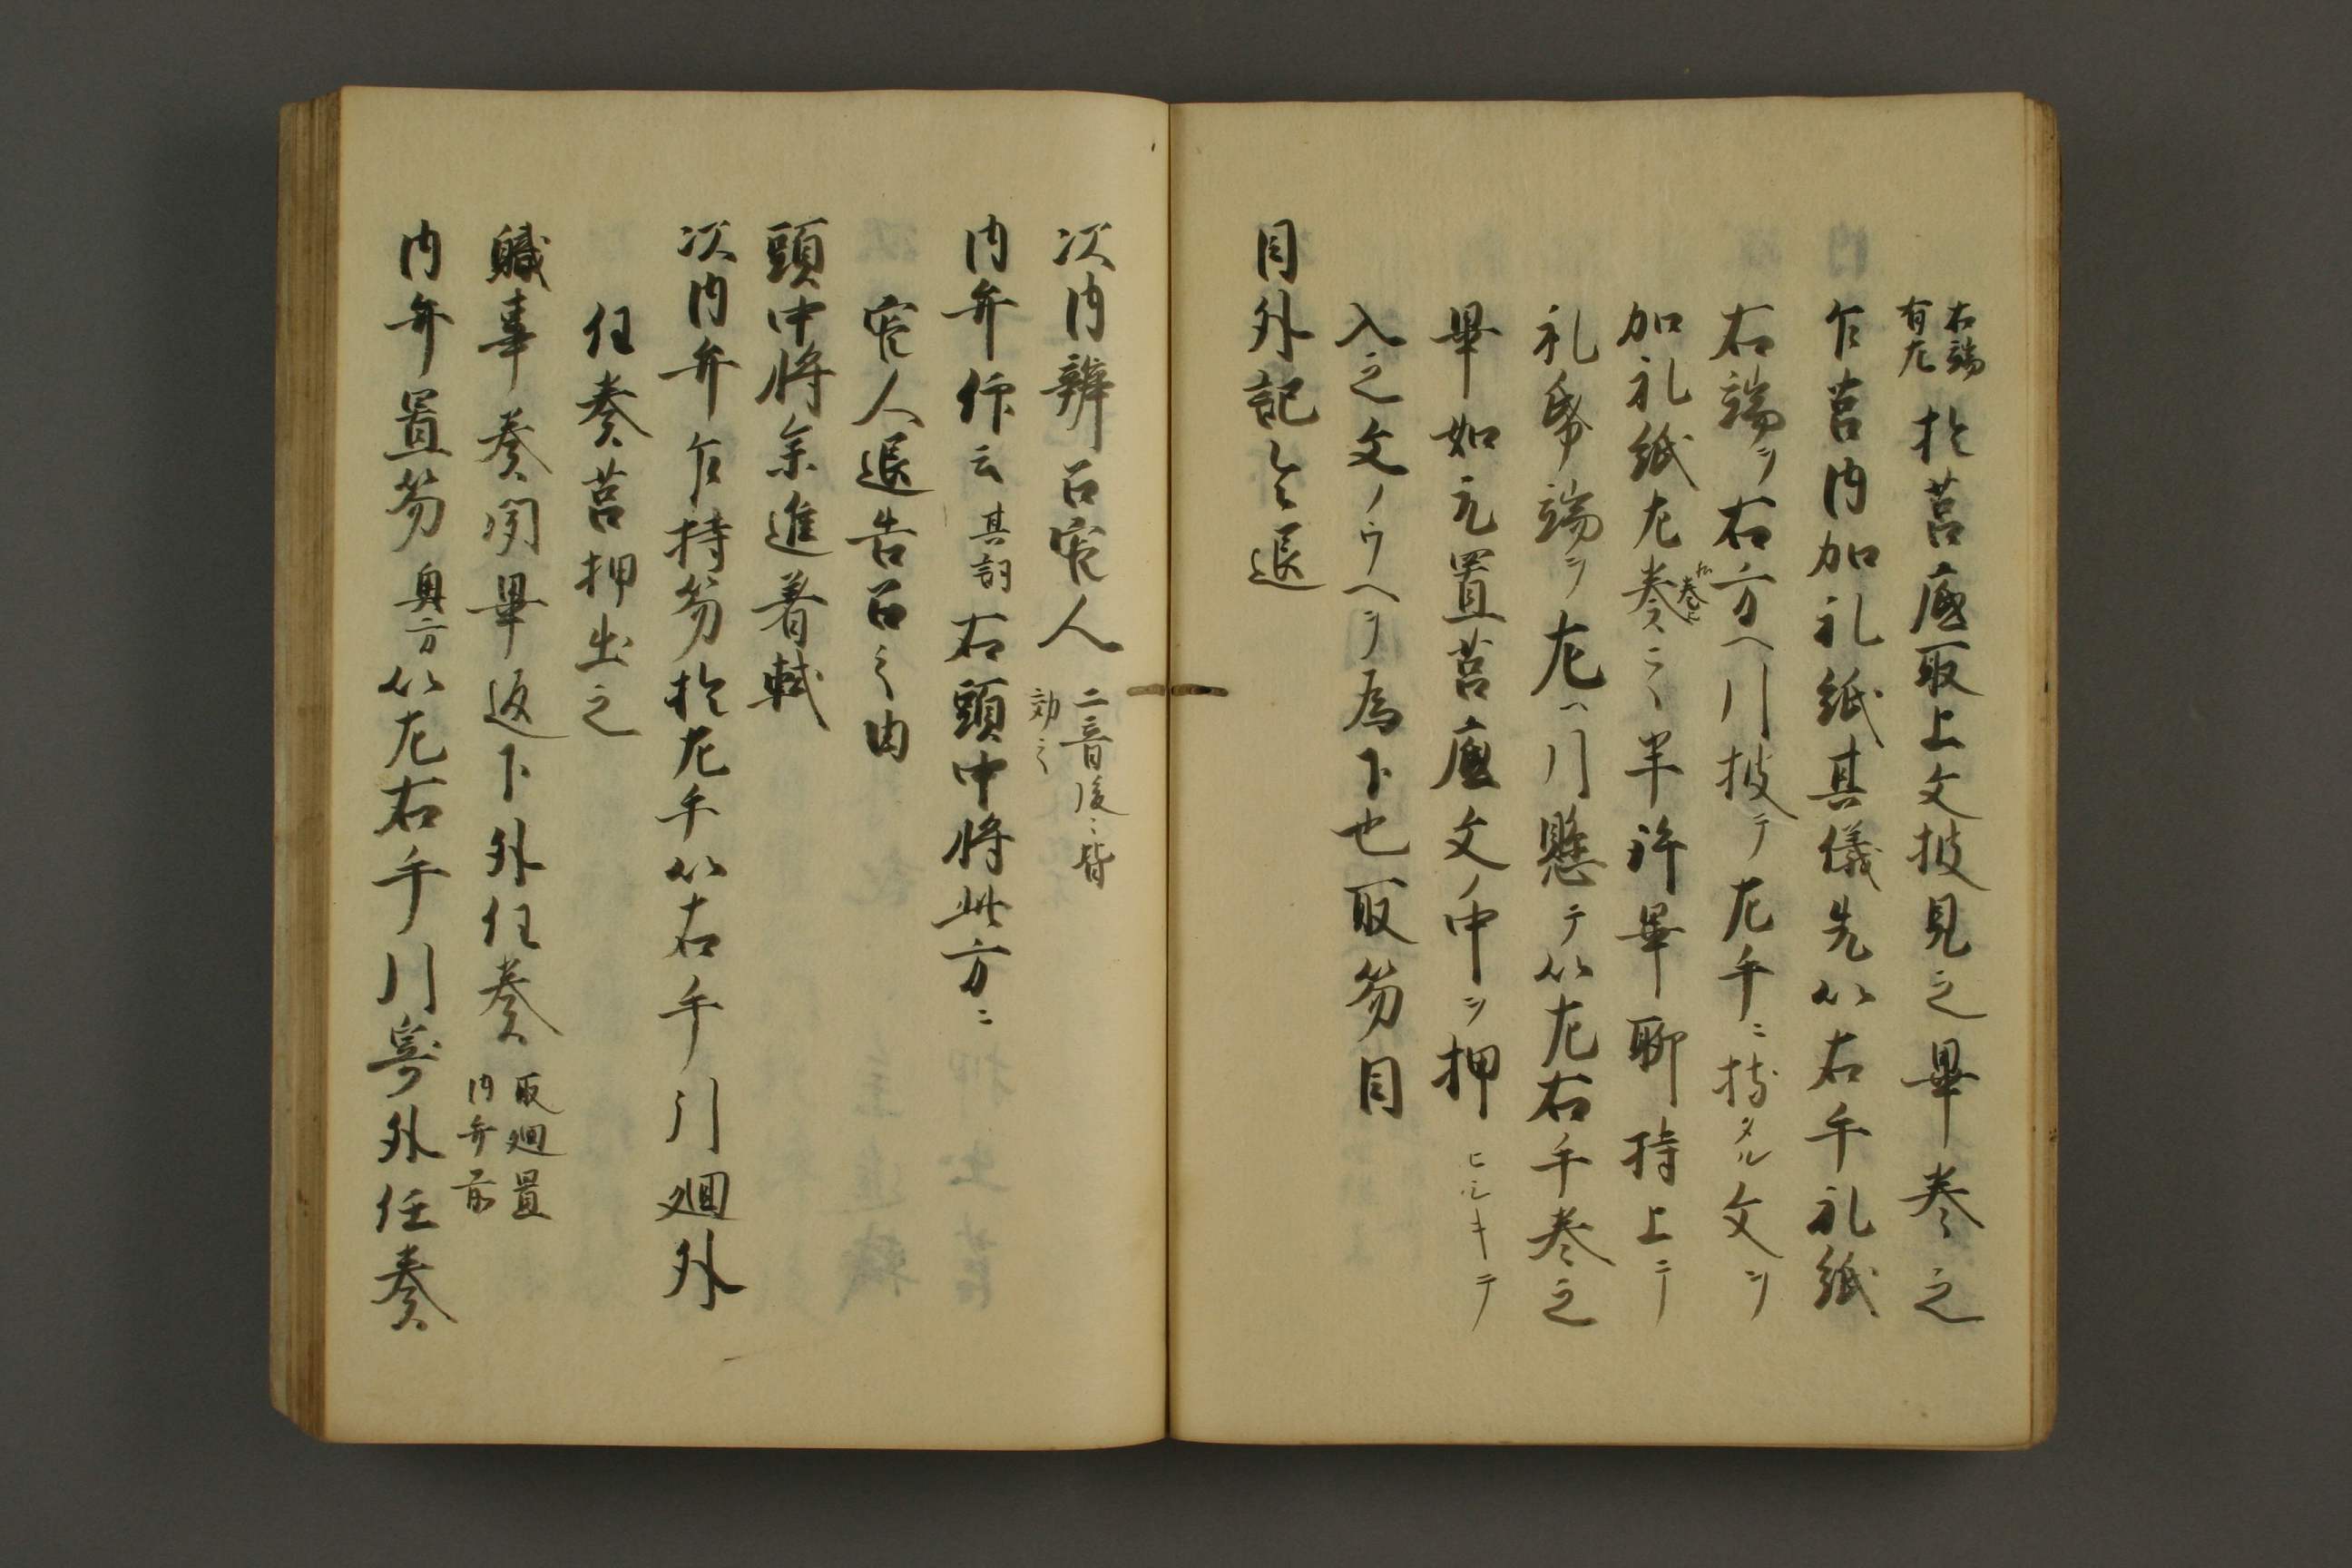 右端
有左
於莒底取上文披見之畢巻之
乍莒内加礼紙其儀先以右手礼紙
右端ヲ右方ヘ引披テ左手ニ持タル文ヲ
加礼紙左奏ニ半許畢聊持上テ
礼帋端ヲ左ヘ引懸テ以左右手巻之
畢如元置莒底文ノ中ヲ押
入之文ノウヘヲ為下也取笏目
目外記々退
次内辨召官人 二音後々皆
効之
内弁仰云 其詞 右頭中将此方ニ
官人退告召之由
頭中将余進着軾
次内弁乍持笏於左手以右手引廻外
任奏莒押出之
職事奏聞畢返下外任奏 取廻置
内弁前
内弁置笏 奥方 以左右手引寄外任奏